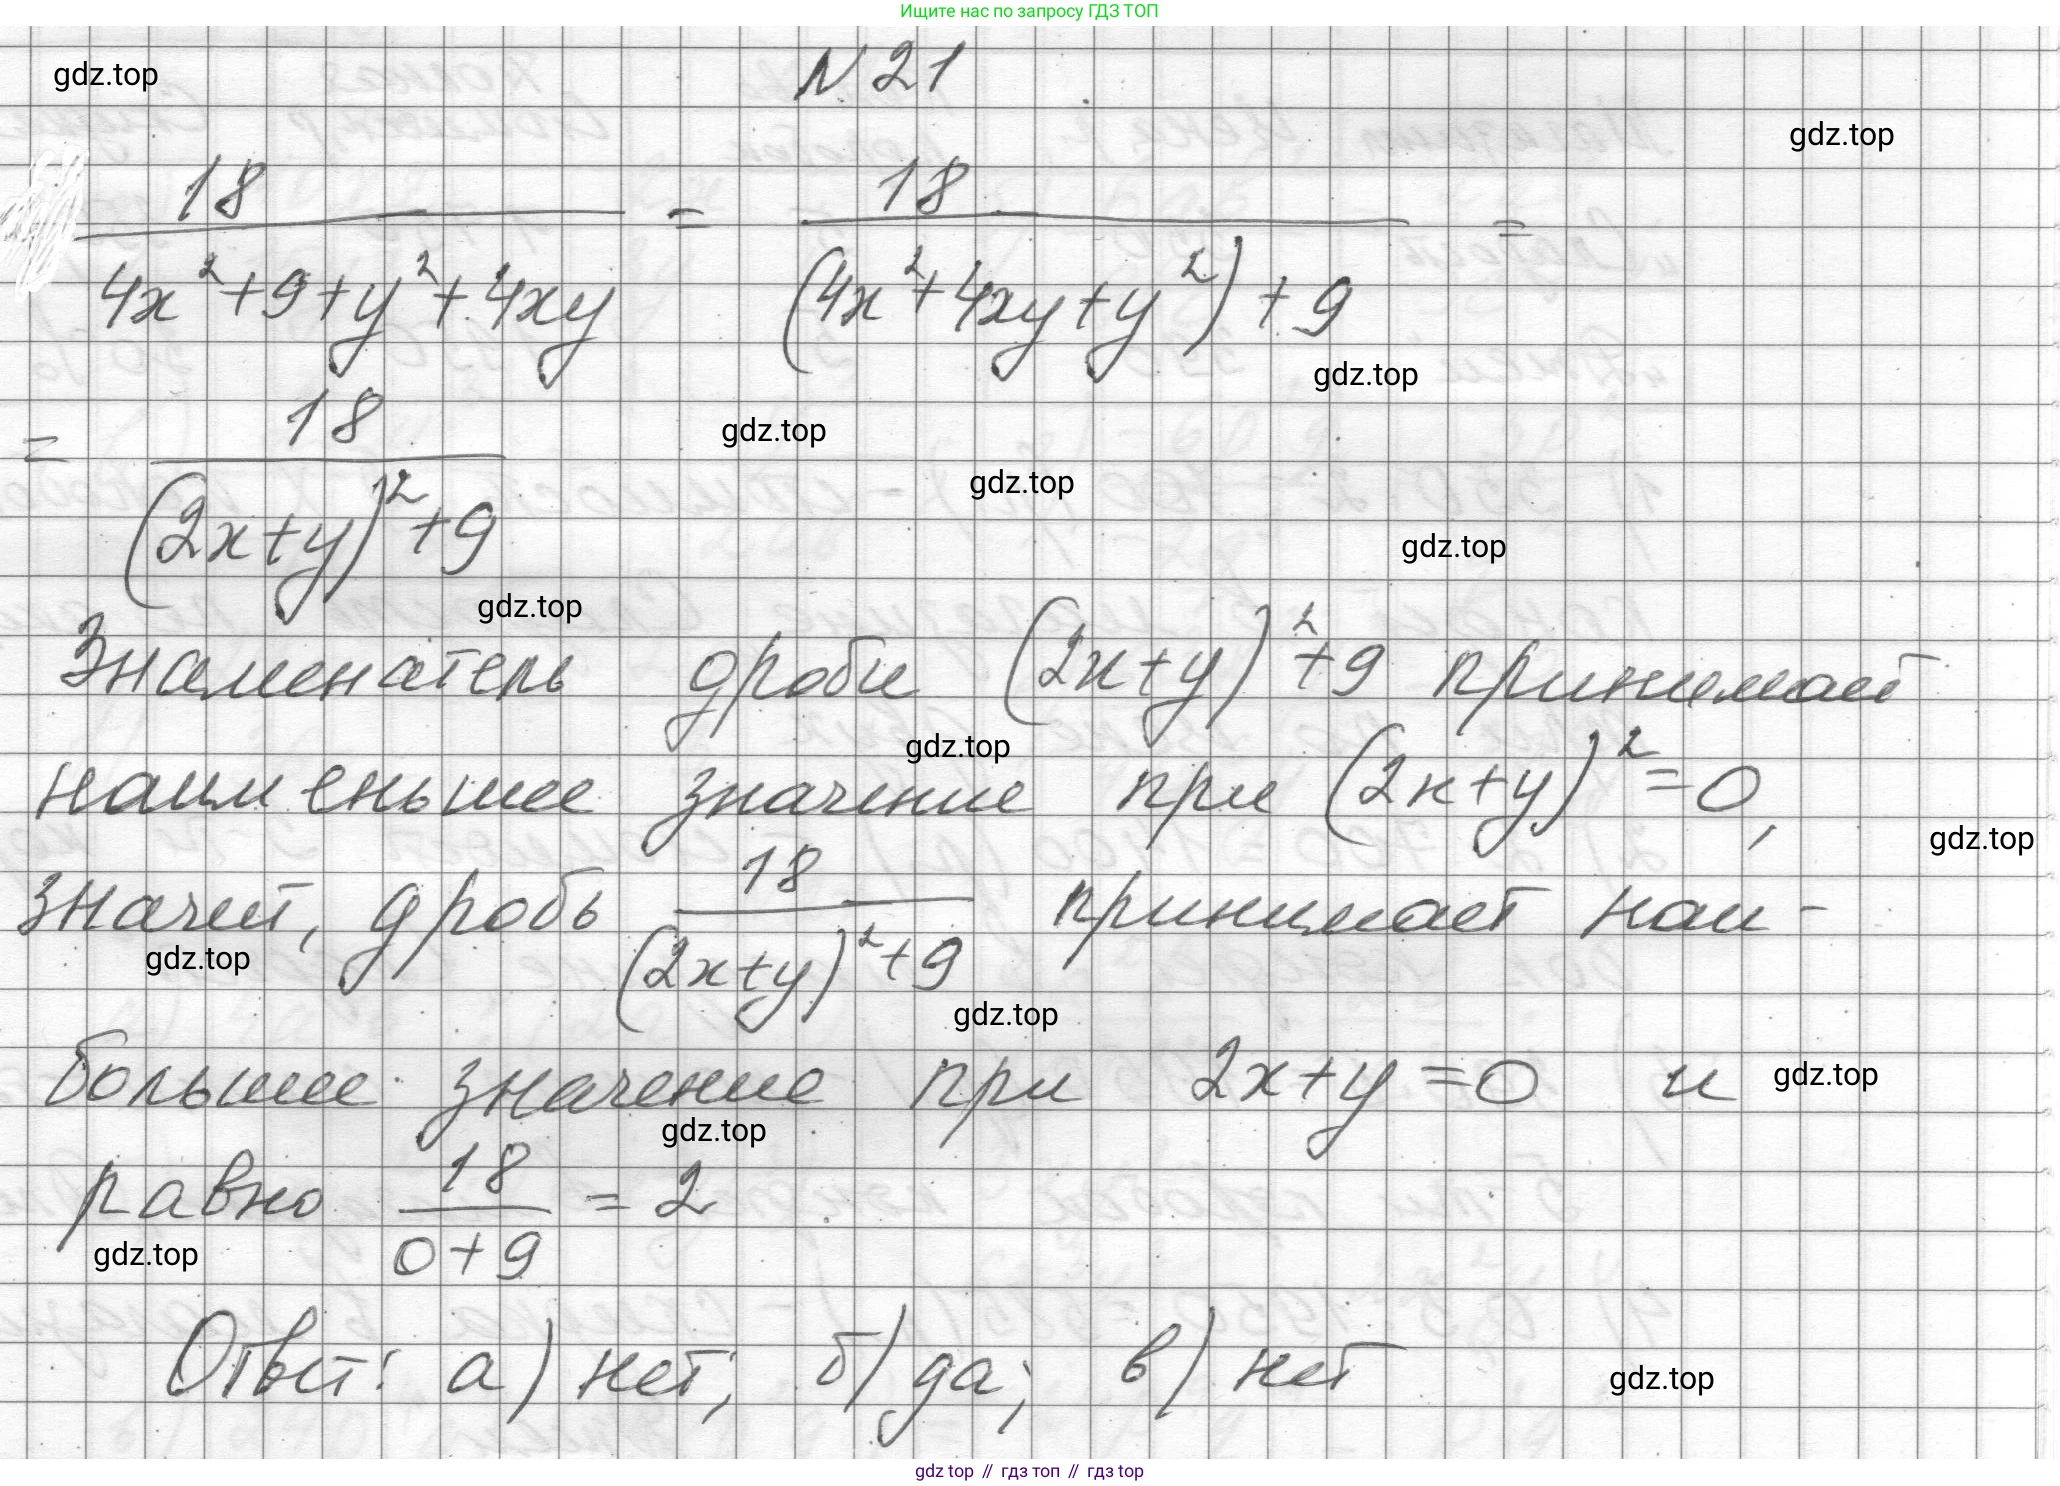 Ищите нас по запросу ГДЗ ТОП
№ 21
gdz.top
gdz.top
18 / (4x² + 9 + y² + 4xy) = 18 / ((4x² + 4xy + y²) + 9) =
gdz.top
= 18 / ((2x + y)² + 9)
gdz.top
gdz.top
gdz.top
gdz.top
Знаменатель дроби (2x + y)² + 9 принимает
gdz.top
наименьшее значение при (2x + y)² = 0,
gdz.top
значит, дробь 18 / ((2x + y)² + 9) принимает наи-
gdz.top
gdz.top
большее значение при 2x + y = 0 и
gdz.top
gdz.top
равно 18 / (0 + 9) = 2
gdz.top
Ответ: а) нет; б) да; в) нет
gdz.top
gdz top // гдз топ // гдз top